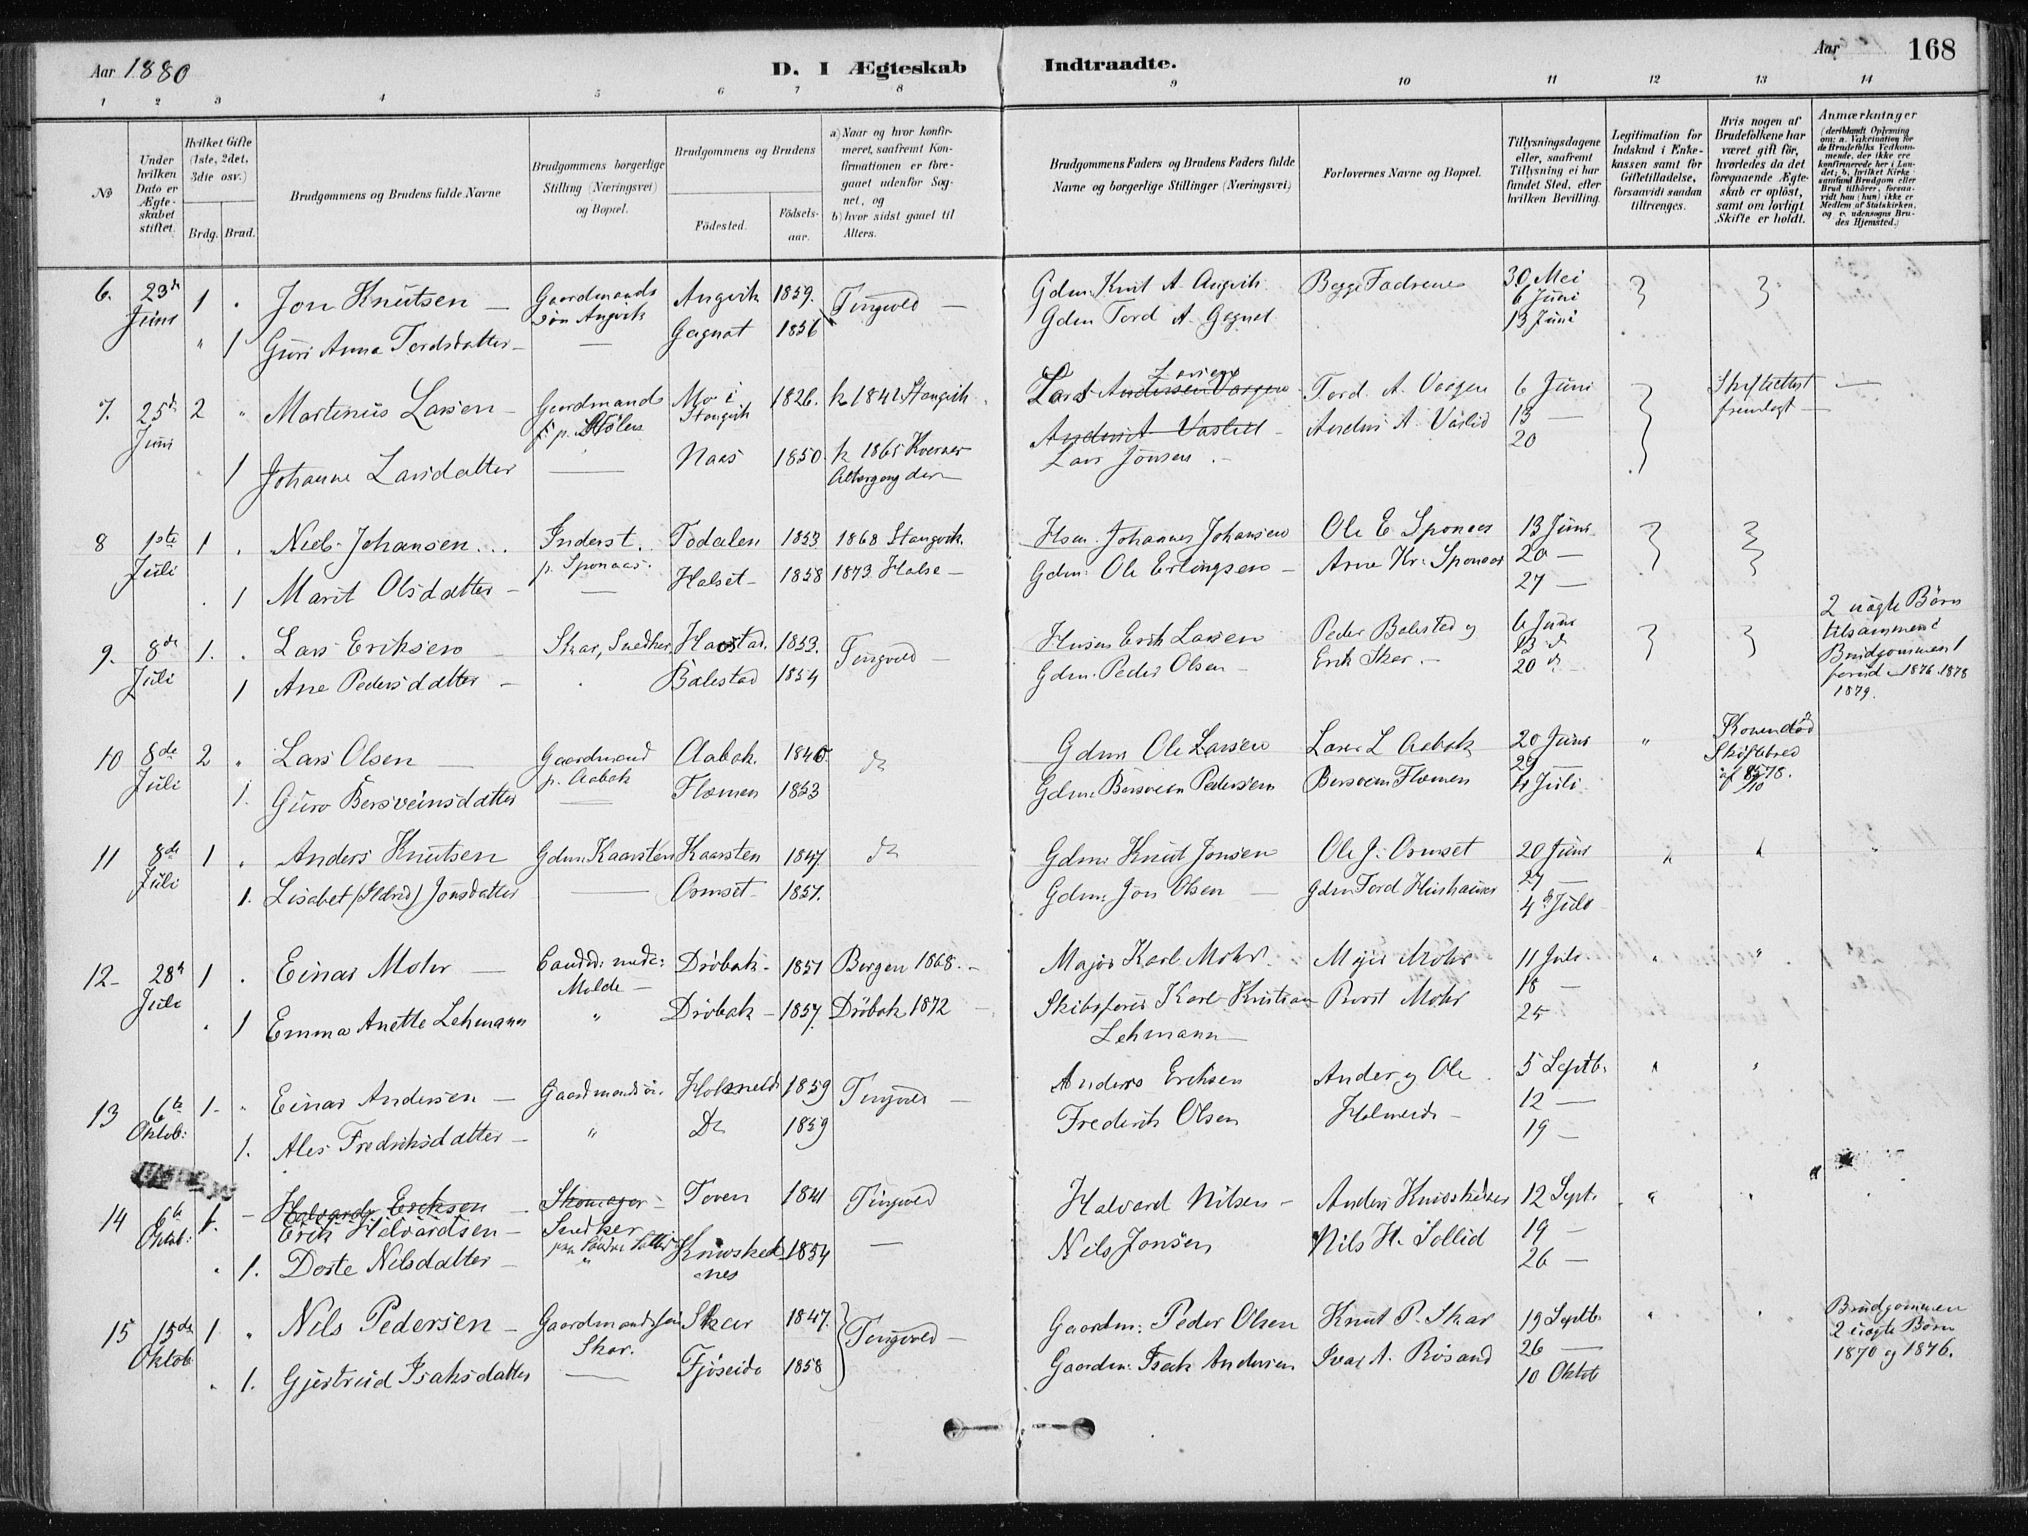 Aar 1880
D. I Ægteskab Indtraadte.
Aar
168
1 2 3 4 5 6 7 8 9 10 11 12 13 14
No
Under hvilken Dato er Ægteskabet stiftet.
Hvilket Gifte (1ste, 2det, 3die osv.)
Brdg. Brud.
Brudgommens og Brudens fulde Navne
Brudgommens borgerlige Stilling (Næringsvei) og Bopæl.
Brudgommens og Brudens
Födested.
Födselsaar.
a) Naar og hvor konfirmeret, saafremt Konfirmationen er foregaaet udenfor Sognet, og
b) hvor sidst gaaet til Alters.
Brudgommens Faders og Brudens Faders fulde Navne og borgerlige Stillinger (Næringsvei)
Forlovernes Navne og Bopæl.
Tillysningsdagene eller, saafremt Tillysning ei har fundet Sted, efter hvilken Bevilling.
Legitimation for Indskud i Enkekassen samt for Giftetilladelse, forsaavidt saadan tiltrænges.
Hvis nogen af Brudefolkene har været gift för, hvorledes da det foregaaende Ægteskab er oplöst, samt om lovligt Skifte er holdt.
Anmærkninger
(deriblandt Oplysning om: a. Vakcination for de Brudefolks Vedkommende, der ikke ere konfirmerede her i Landet; b. hvilket Kirkesamfund Brudgom eller Brud tilhörer, forsaavidt han (hun) ikke er Medlem af Statskirken, og c. udensogns Brudes Hjemsted.)
6. 23de Juni 1 " Jon Knutsen Gaardmands Søn Angvik Angvik 1859. Tingvold Gdm. Knut A. Angvik Begge Fædrene 30 Mei
6 Juni
" 1 Guri Anna Tordsdatter Gagnat 1856 Gdm Tord A. Gagnat 13 Juni
7. 25de Juni 2 " Martinus Larsen Gaardmand Mo i Stangvik 1826. k 1842 Stangvik Lars Larsen Tord A. Vaagen 6 Juni Skifteattest fremlagt
Anders A. Vaslid 13
20
1 Johanne Larsdatter Naas 1850 k 1865 Kvernes
Altergang der Lars Jonsen
8 1ste Juli 1 " Niels Johansen Inderst p. Sponaas Todalen 1853 1868 Stangvik. Hsm. Johannes Johansen Ole E Sponaas 13 Juni
20 —
1 Marit Olsdatter Halset 1858 1873 Halse Gdm. Ole Erlingsen Arne Kr. Sponaas 27 —
9. 8de Juli 1. " Lars Eriksen Skar, Snedker 1853. Tingvold Husm Erik Larsen Peder Balestad og 6 Juni
13 d
1 Ane Pedersdatter Balestad 1854 Gdm. Peder Olsen Erik Skar 20 d
2 uægte Børn tilsammen i Brudgommen 1 forud 1876. 1878 1879.
10 8de Juli 2 " Lars Olsen Gaardmand p. Aabak Aabak. 1840. do Gdm Ole Larsen Lars L Aabak 20 Juni "
1. Guro Bersveinsdatter Flæmen 1853 Gdm. Bersveen Pedersen Bersveen Flæmen 4 Juli
Konen død
11 8de Juli 1 " Anders Knutsen Gdm. Kaarsten Kaarsten 1847 do Gdm. Knut Jonsen Ole J. Ormset 20 Juni " "
27 —
1. Lisabet (Ildrid) Jonsdatter Ormset 1857. Gdm. Jon Olsen Gdm Tord 4de Juli
12 28de Juli 1 " Einar Mohr Candid. med. Molde Dröbak 1851 Bergen 1868. Major Karl Mohr Major Mohr 11 Juli " "
18 —
1 Emma Anette Lehmann " Dröbak 1857. Dröbak 1872 Skibsfører Karl Kristian Lehmann Mohr 25
13 6te Oktob: 1. " Einar Andersen Gaardmandssøn. 1859 Tingvold Anders Eriksen Anders og Ole 5 Septb. " "
12 —
1. Ales Fredriksdatter " Do 1859 Frederik Olsen 19 —
14 6te Oktob: 1. Halvard Eriksen
Erik Halvardsen Skomager
Snedker Toven 1841 Tingvold Halvard Nilsen 12 Sept. "
19 —
" 1. Dorte Nilsdatter 1854 Nils Jonsen Nils H. Sollid 26 —
15 15de Oktob 1 " Nils Pedersen Gaardmandssøn Skar. Skar 1847. Tingvold Gaardm: Peder Olsen Knut P. Skar 19 Septb. " "
26 —
" 1. Gjertrud Isaksdatter Fjöseide 1858 Gaardm: Isak Andersen Ivar A. Rösand 10 Oktob
Brudgommen 2 uægte Børn 1870 og 1876.